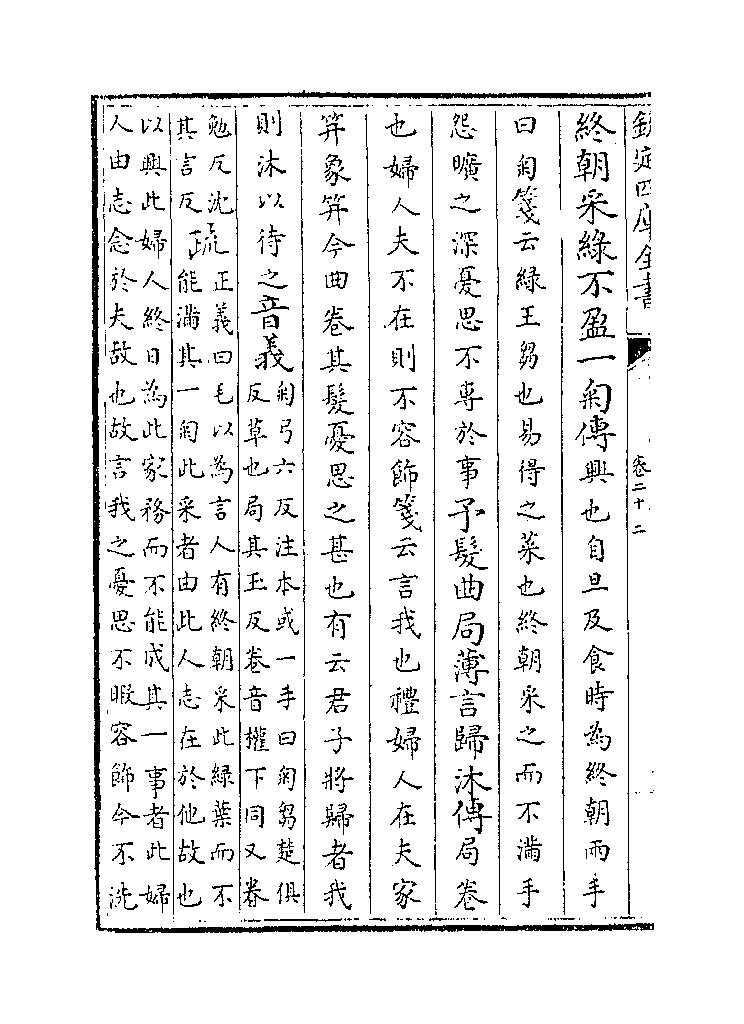 欽定四庫全書
卷二十二
終朝采綠不盈一匊傳興也自旦及食時為終朝兩手
曰匊箋云綠王芻也易得之菜也終朝采之而不滿手
怨曠之深憂思不專於事予髮曲局薄言歸沐傳局卷
也婦人夫不在則不容飾箋云言我也禮婦人在夫家
笄象笄今曲卷其髮憂思之甚也有云君子將歸者我
則沐以待之音義
匊弓六反注本或一手曰匊芻楚俱
反草也局其玉反卷音權下同又眷
勉反沈
其言反
疏
正義曰毛以為言人有終朝采此綠葉而不
能滿其一匊此采者由此人志在於他故也
以興此婦人終日為此家務而不能成其一事者此婦
人由志念於夫故也故言我之憂思不暇容飾今不洗